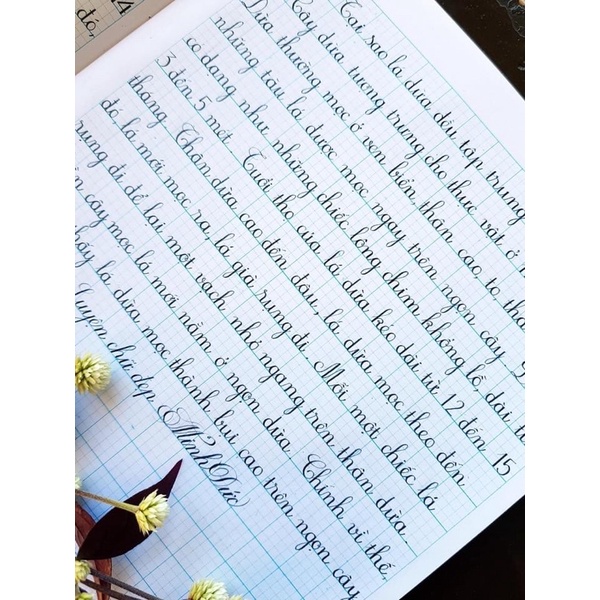 14
đó,
Tại sao lá dừa đều tập trung
Cây dừa tượng trưng cho thực vật ở
Dừa thường mọc ở ven biển, thân cao, to,
những tàu lá được mọc ngay trên ngọn cây.
có dạng như những chiếc lông chim khổng lồ, dài
3 đến 5 mét. Tuổi thọ của lá dừa kéo dài từ 12 đến 15
tháng. Thân dừa cao đến đâu, lá dừa mọc theo đến
đó, lá mới mọc ra, lá già rụng đi. Mỗi một chiếc lá
rụng đi để lại một vạch nhỏ ngang trên thân dừa.
cây mọc lá mới nằm ở ngọn dừa. Chính vì thế,
thấy lá dừa mọc thành bụi cao trên ngọn cây
Luyện chữ đẹp Minh Đức